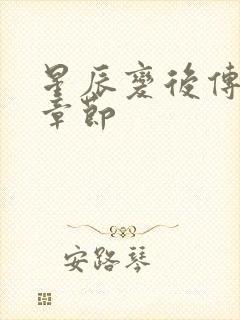 星辰變後傳
章節
安路琴